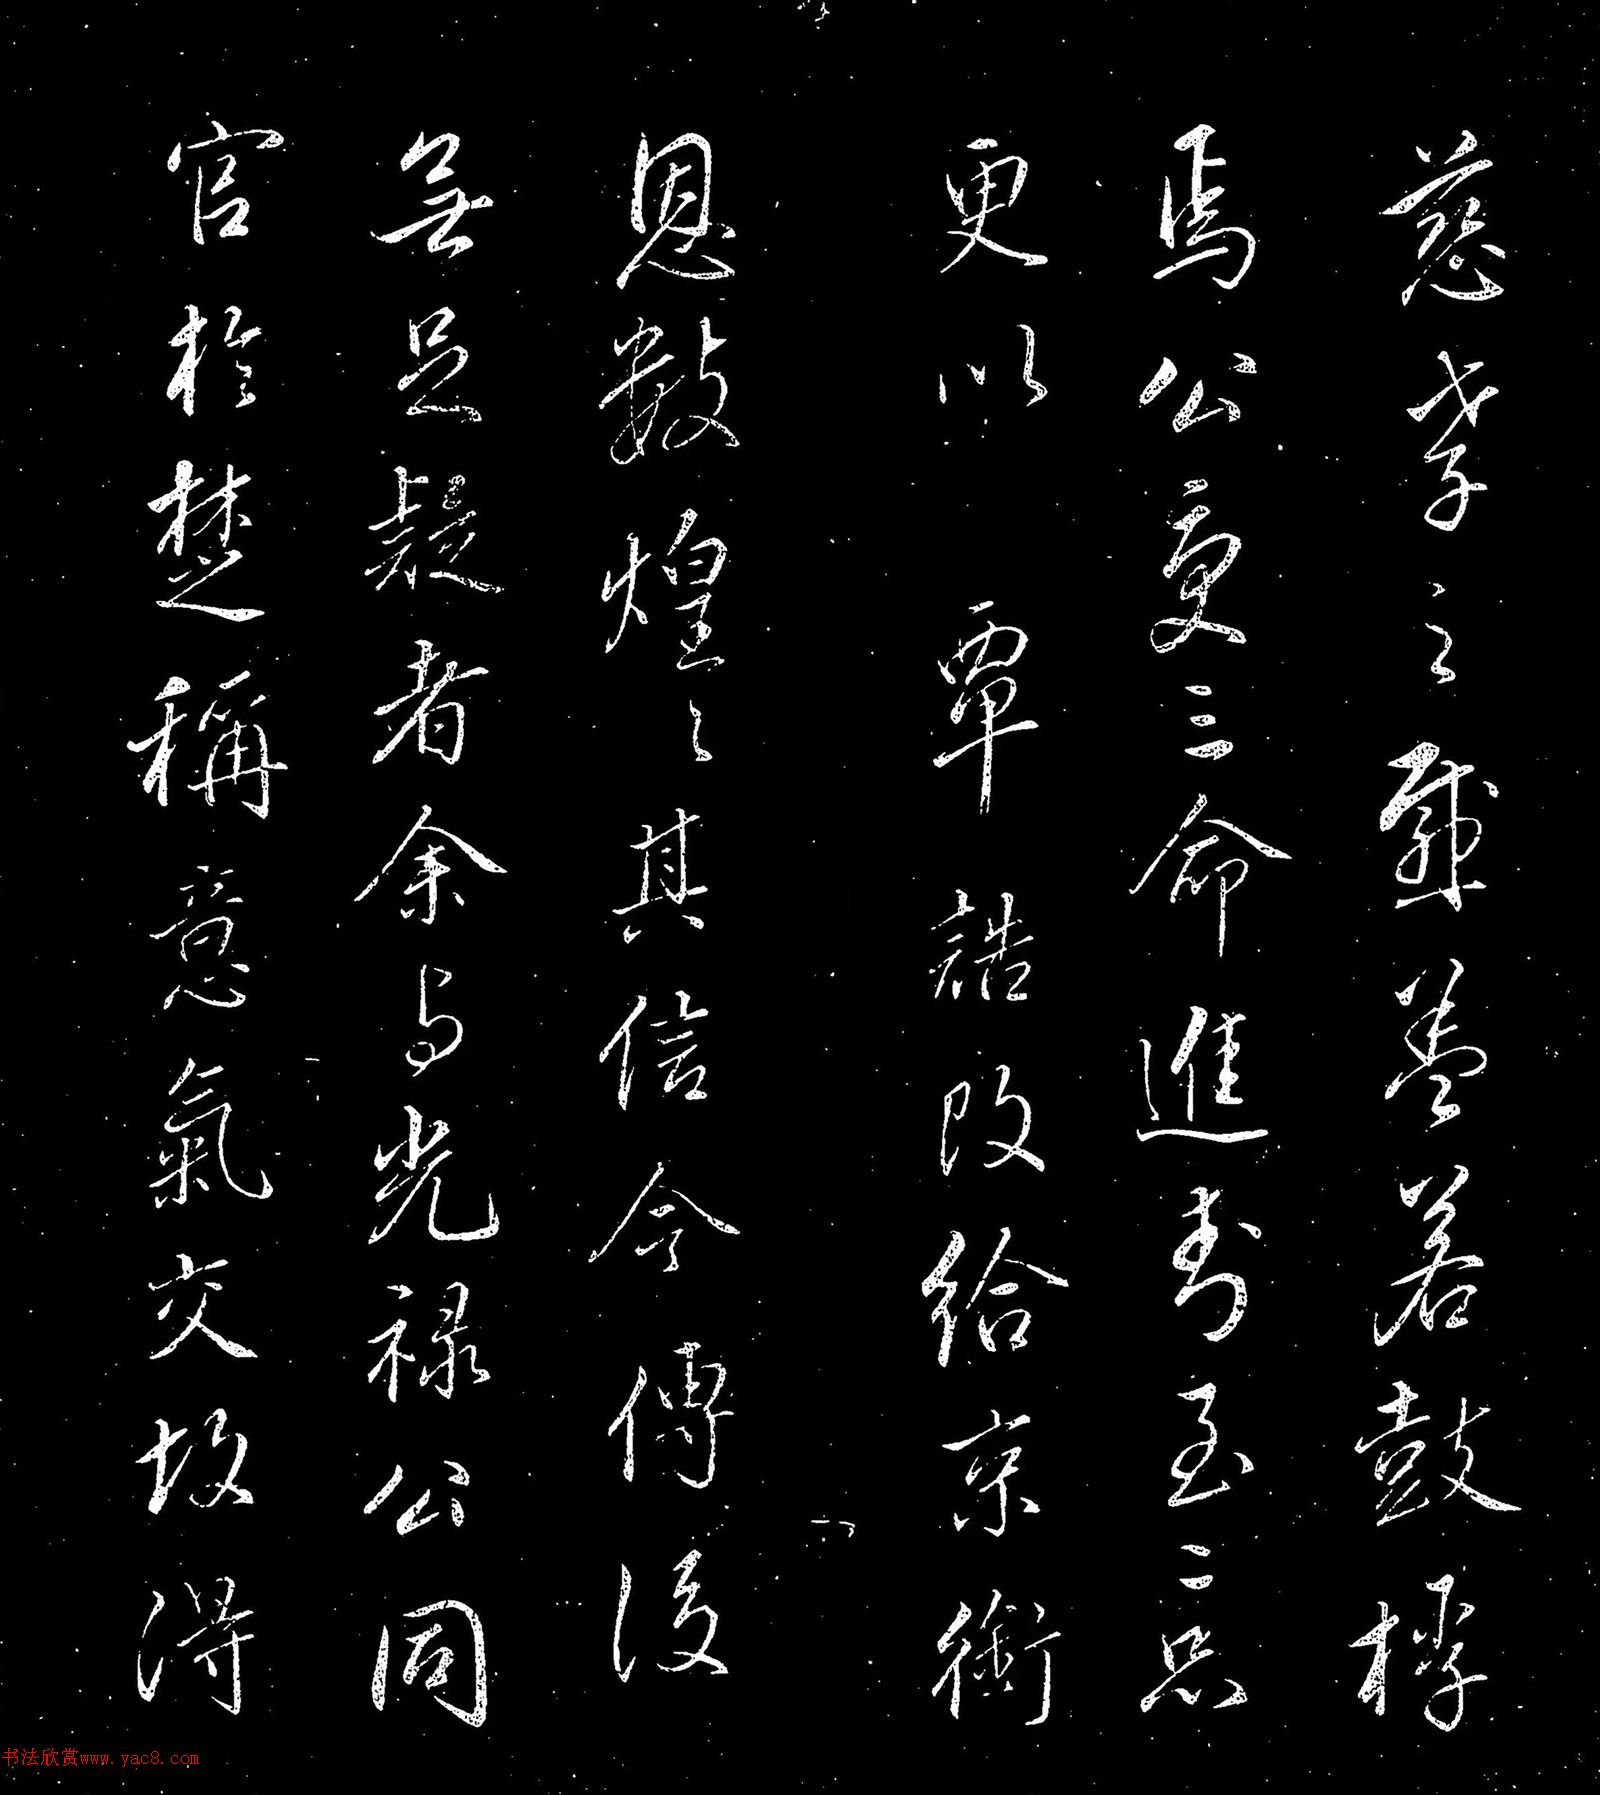 慈孝之感蓋若鼓桴
焉公更三命進封至二品
更以 覃誥改給京銜
恩數煌煌其信今傳後
無足疑者余与光祿公同
官於楚稱意氣交故得
书法欣赏www.yac8.com